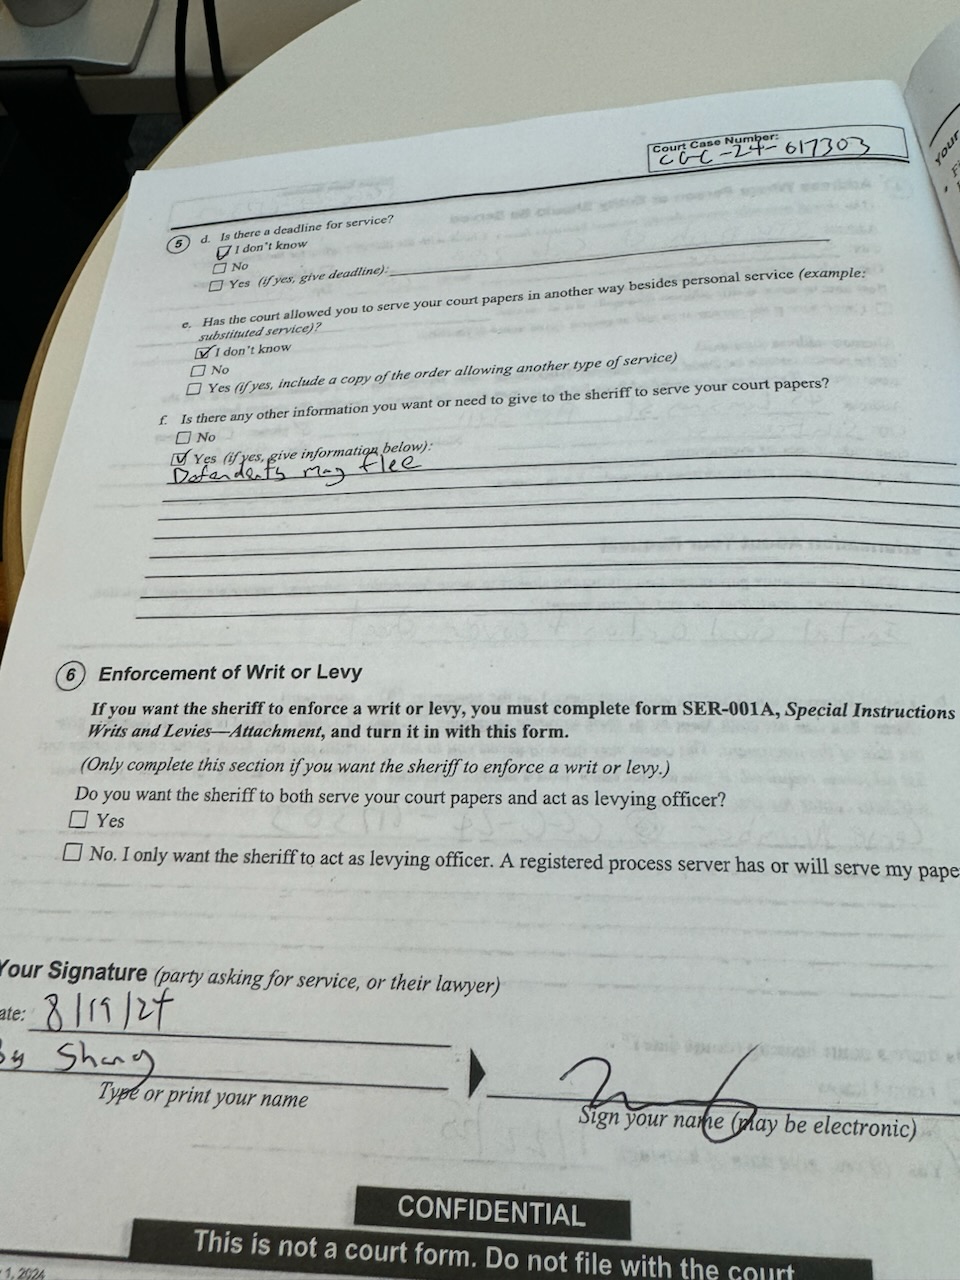 Court Case Number:
CGC-24-617303
5 d. Is there a deadline for service?
I don't know
No
Yes (if yes, give deadline):
e. Has the court allowed you to serve your court papers in another way besides personal service (example:
substituted service)?
I don't know
No
Yes (if yes, include a copy of the order allowing another type of service)
f. Is there any other information you want or need to give to the sheriff to serve your court papers?
No
Yes (if yes, give information below):
Defendants may flee
6 Enforcement of Writ or Levy
If you want the sheriff to enforce a writ or levy, you must complete form SER-001A, Special Instructions
Writs and Levies—Attachment, and turn it in with this form.
(Only complete this section if you want the sheriff to enforce a writ or levy.)
Do you want the sheriff to both serve your court papers and act as levying officer?
Yes
No. I only want the sheriff to act as levying officer. A registered process server has or will serve my pape
Your Signature (party asking for service, or their lawyer)
ate: 8/19/24
Shang
Type or print your name
Sign your name (may be electronic)
CONFIDENTIAL
This is not a court form. Do not file with the court
1, 2024
Your